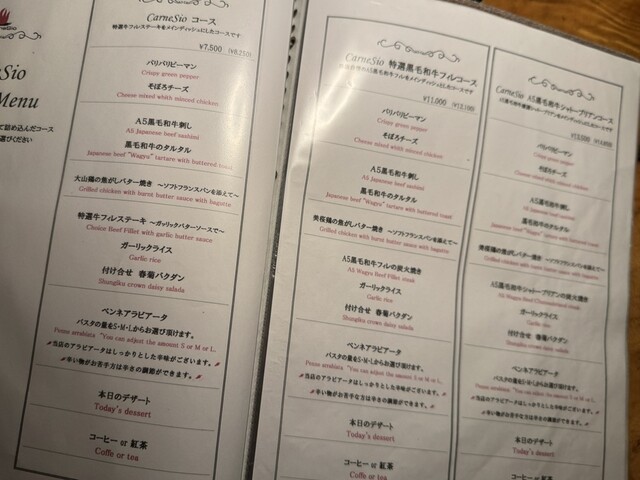 Sio
Menu
て詰め込んだコース
選びください
CarneSio コース
特選牛フィレステーキをメインディッシュにしたコースです
¥7,500 (¥8,250)
パリパリピーマン
Crispy green pepper
そぼろチーズ
Cheese mixed whith minced chicken
A5黒毛和牛刺し
A5 Japanese beef sashimi
黒毛和牛のタルタル
Japanese beef "Wagyu" tartare with buttered toast
大山鶏の焦がしバター焼き ～ソフトフランスパンを添えて～
Grilled chicken with burnt butter sauce with baguette
特選牛フィレステーキ ～ガーリックバターソースで～
Choice Beef Fillet with garlic butter sauce
ガーリックライス
Garlic rice
付け合せ 春菊バクダン
Shungiku crown daisy salada
ペンネアラビアータ
パスタの量をS・M・Lからお選び頂けます。
Penne arrabiata "You can adjust the amount S or M or L.
当店のアラビアータはしっかりとした辛味がございます。
辛い物がお苦手な方は辛さの調節ができます。
本日のデザート
Today's dessert
コーヒー or 紅茶
Coffe or tea
CarneSio 特選黒毛和牛フルコース
¥11,000 (¥12,100)
パリパリピーマン
Crispy green pepper
そぼろチーズ
Cheese mixed whith minced chicken
A5黒毛和牛刺し
A5 Japanese beef sashimi
黒毛和牛のタルタル
Japanese beef "Wagyu" tartare with buttered toast
美桜鶏の焦がしバター焼き ～ソフトフランスパンを添えて～
Grilled chicken with burnt butter sauce with baguette
A5黒毛和牛フィレの炭火焼き
A5 Wagyu Beef Fillet steak
ガーリックライス
Garlic rice
付け合せ 春菊バクダン
Shungiku crown daisy salada
ペンネアラビアータ
パスタの量をS・M・Lからお選び頂けます。
Penne arrabiata "You can adjust the amount S or M or L.
当店のアラビアータはしっかりとした辛味がございます。
辛い物がお苦手な方は辛さの調節ができます。
本日のデザート
Today's dessert
コーヒー or 紅茶
Coffe or tea
CarneSio A5黒毛和牛シャトーブリアンコース
パリパリピーマン
Crispy green pepper
そぼろチーズ
Cheese mixed whith minced chicken
A5黒毛和牛刺し
A5 Japanese beef sashimi
黒毛和牛のタルタル
Japanese beef "Wagyu" tartare with buttered toast
美桜鶏の焦がしバター焼き ～ソフトフランスパンを添えて～
Grilled chicken with burnt butter sauce with baguette
A5黒毛和牛シャトーブリアンの炭火焼き
ガーリックライス
Garlic rice
付け合せ 春菊バクダン
Shungiku crown daisy salada
ペンネアラビアータ
パスタの量をS・M・Lからお選び頂けます。
Penne arrabiata "You can adjust the amount S or M or L.
当店のアラビアータはしっかりとした辛味がございます。
辛い物がお苦手な方は辛さの調節ができます。
本日のデザート
Today's dessert
コーヒー or 紅茶